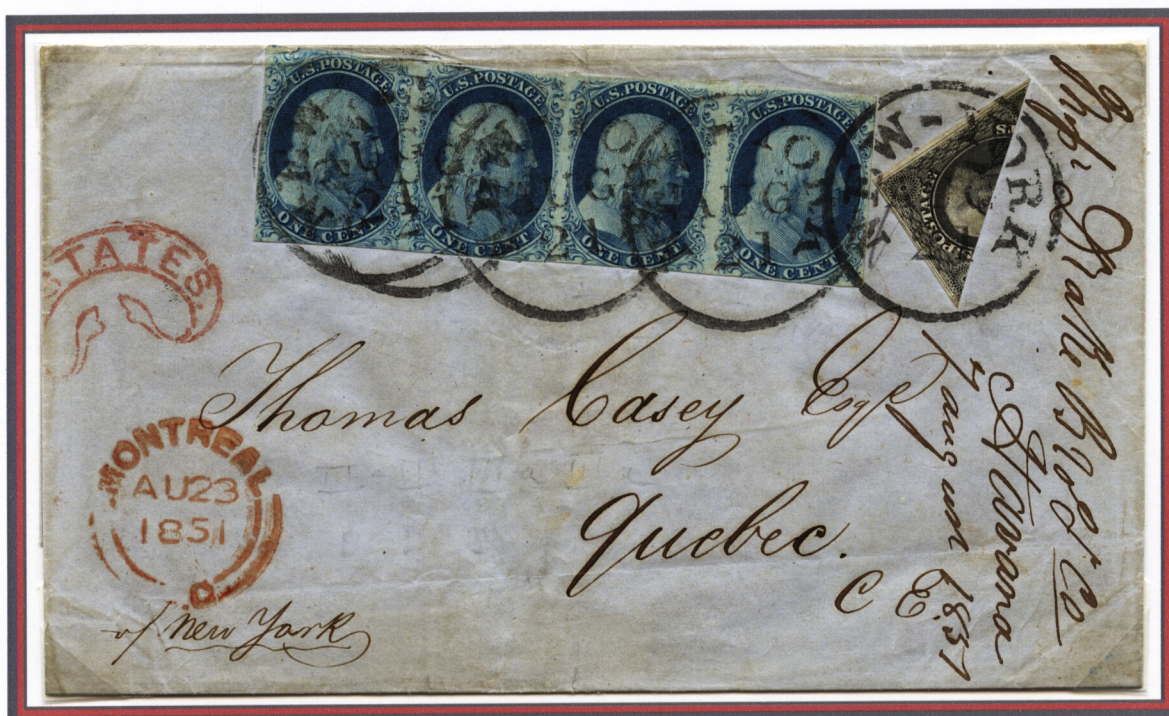 U.S. POSTAGE
ONE CENT
U.S. POSTAGE
ONE CENT
U.S. POSTAGE
ONE CENT
U.S. POSTAGE
ONE CENT
NEW-YORK
AUG
POSTAGE
STATES.
MONTREAL
AU23
1851
Thomas Casey Esqr
Quebec.
C E.
New York
Drake Bros & Co
Havana
August 1851